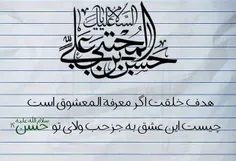 السلام علیک یا
حسن بن علی المجتبی
هدف خلقت اگر معرفة المعشوق است
چیست این عشق به جز حب ولای تو حسن سلام الله علیه